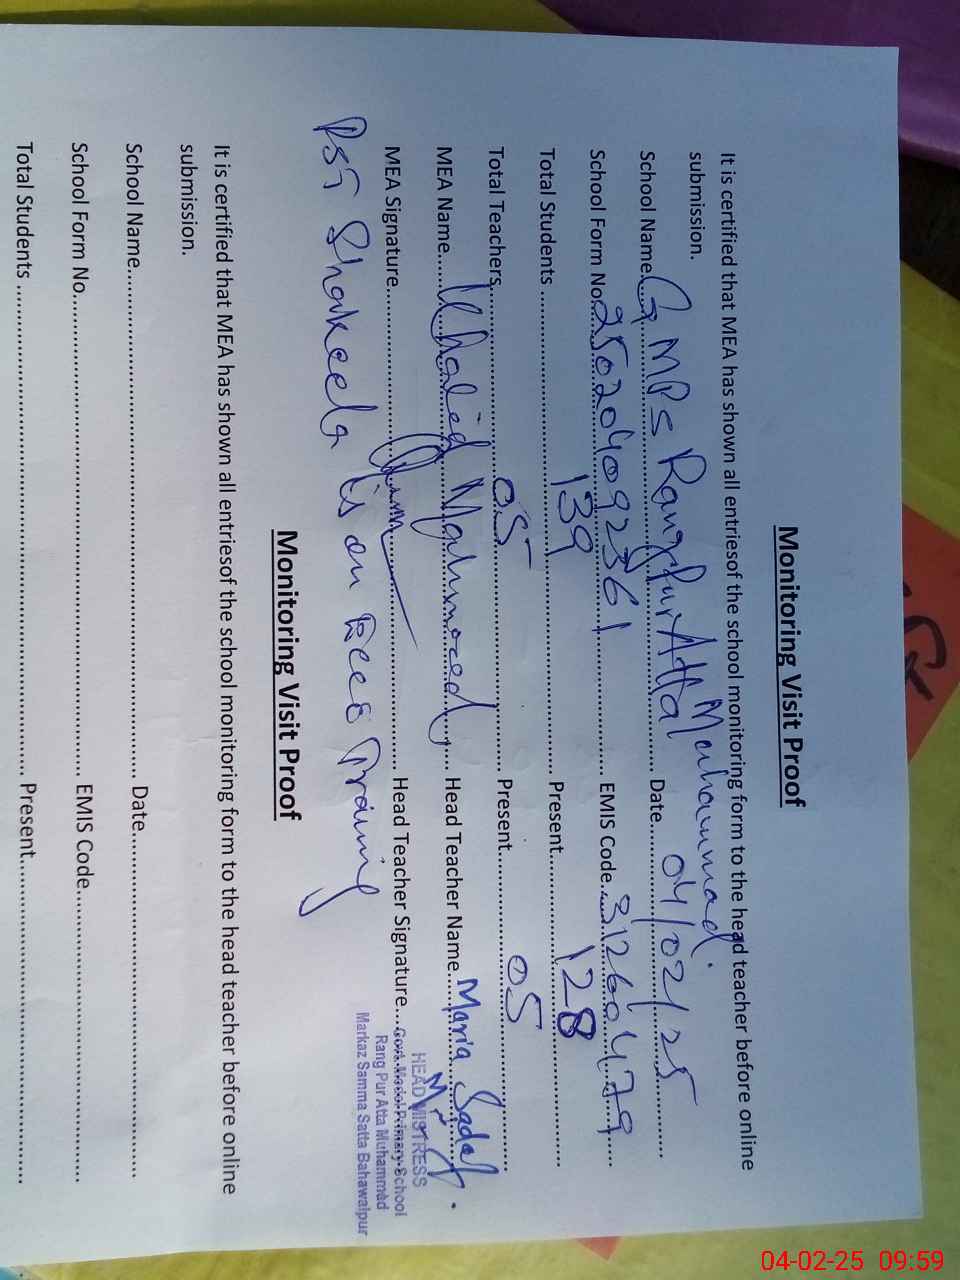 Monitoring Visit Proof
It is certified that MEA has shown all entriesof the school monitoring form to the head teacher before online
submission.
School Name G MPS Rangpur Atta Muhammad. Date 04/02/25
School Form No. 250204092361 EMIS Code 31260479
Total Students 139 Present 128
Total Teachers 05 Present 05
MEA Name Khalid Mahmood, Head Teacher Name Maria Sadaf.
MEA Signature Head Teacher Signature
HEAD MISTRESS
Govt. Model Primary School
Rang Pur Atta Muhammad
Markaz Samma Satta Bahawalpur
PST Shakeela is on ECCE Training
Monitoring Visit Proof
It is certified that MEA has shown all entriesof the school monitoring form to the head teacher before online
submission.
School Name Date
School Form No. EMIS Code
Total Students Present
04-02-25 09:59